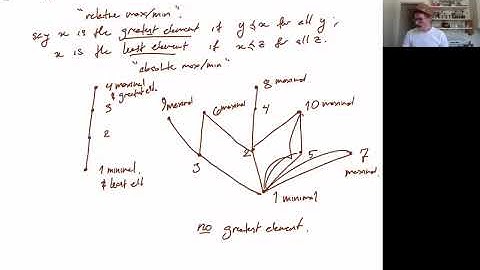 "relative max/min".
say x is the greatest element if y ≤ x for all y;
x is the least element if x ≤ z for all z.
"absolute max/min"
4 maximal
& greatest ell.
3
2
1 minimal
& least ell
9 maximal
6 maximal
8 maximal
4
10 maximal
3
2
5
7
maximal
1 minimal
no greatest element.